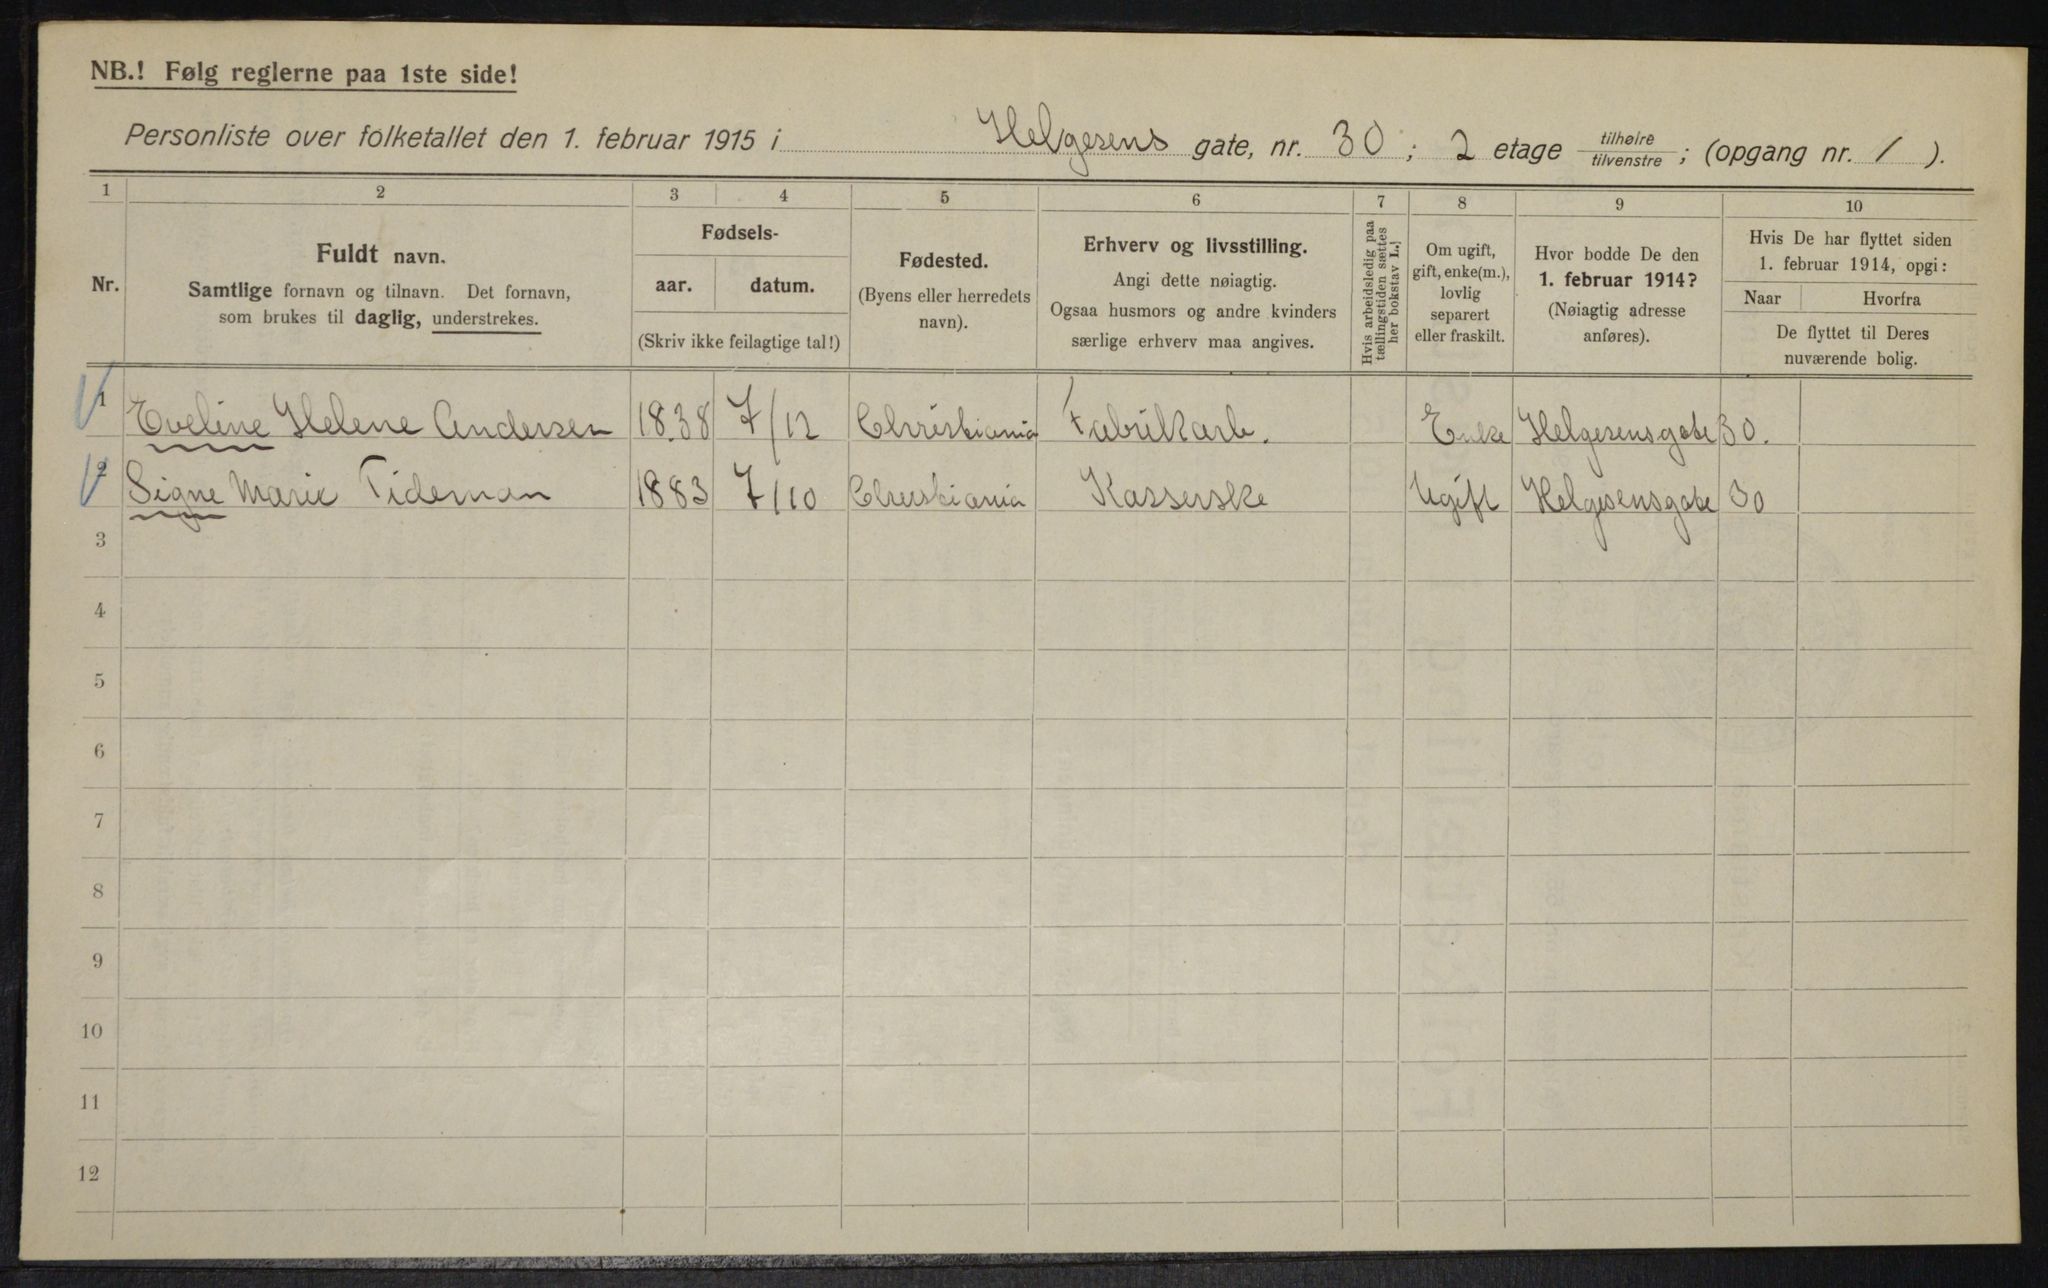 NB.! Følg reglerne paa 1ste side!
Personliste over folketallet den 1. februar 1915 i Helgesens gate, nr. 30; 2 etage tilhøire / tilvenstre; (opgang nr. 1).
1 2 3 4 5 6 7 8 9 10
Nr.
Fuldt navn.
Samtlige fornavn og tilnavn. Det fornavn,
som brukes til daglig, understrekes.
Fødsels-
aar. datum.
(Skriv ikke feilagtige tal!)
Fødested.
(Byens eller herredets
navn).
Erhverv og livsstilling.
Angi dette nøiagtig.
Ogsaa husmors og andre kvinders
særlige erhverv maa angives.
Hvis arbeidsledig paa
tællingstiden sættes
her bokstav L.
Om ugift,
gift, enke(m.),
lovlig
separert
eller fraskilt.
Hvor bodde De den
1. februar 1914?
(Nøiagtig adresse
anføres).
Hvis De har flyttet siden
1. februar 1914, opgi:
Naar Hvorfra
De flyttet til Deres
nuværende bolig.
1 Eveline Helene Andersen 1838 7/12 Christiania Fabrikarb. Enke Helgesensgate 30.
2 Signe Marie Tideman 1883 7/10 Christiania Kasserske Ugift Helgesensgate 30
3
4
5
6
7
8
9
10
11
12